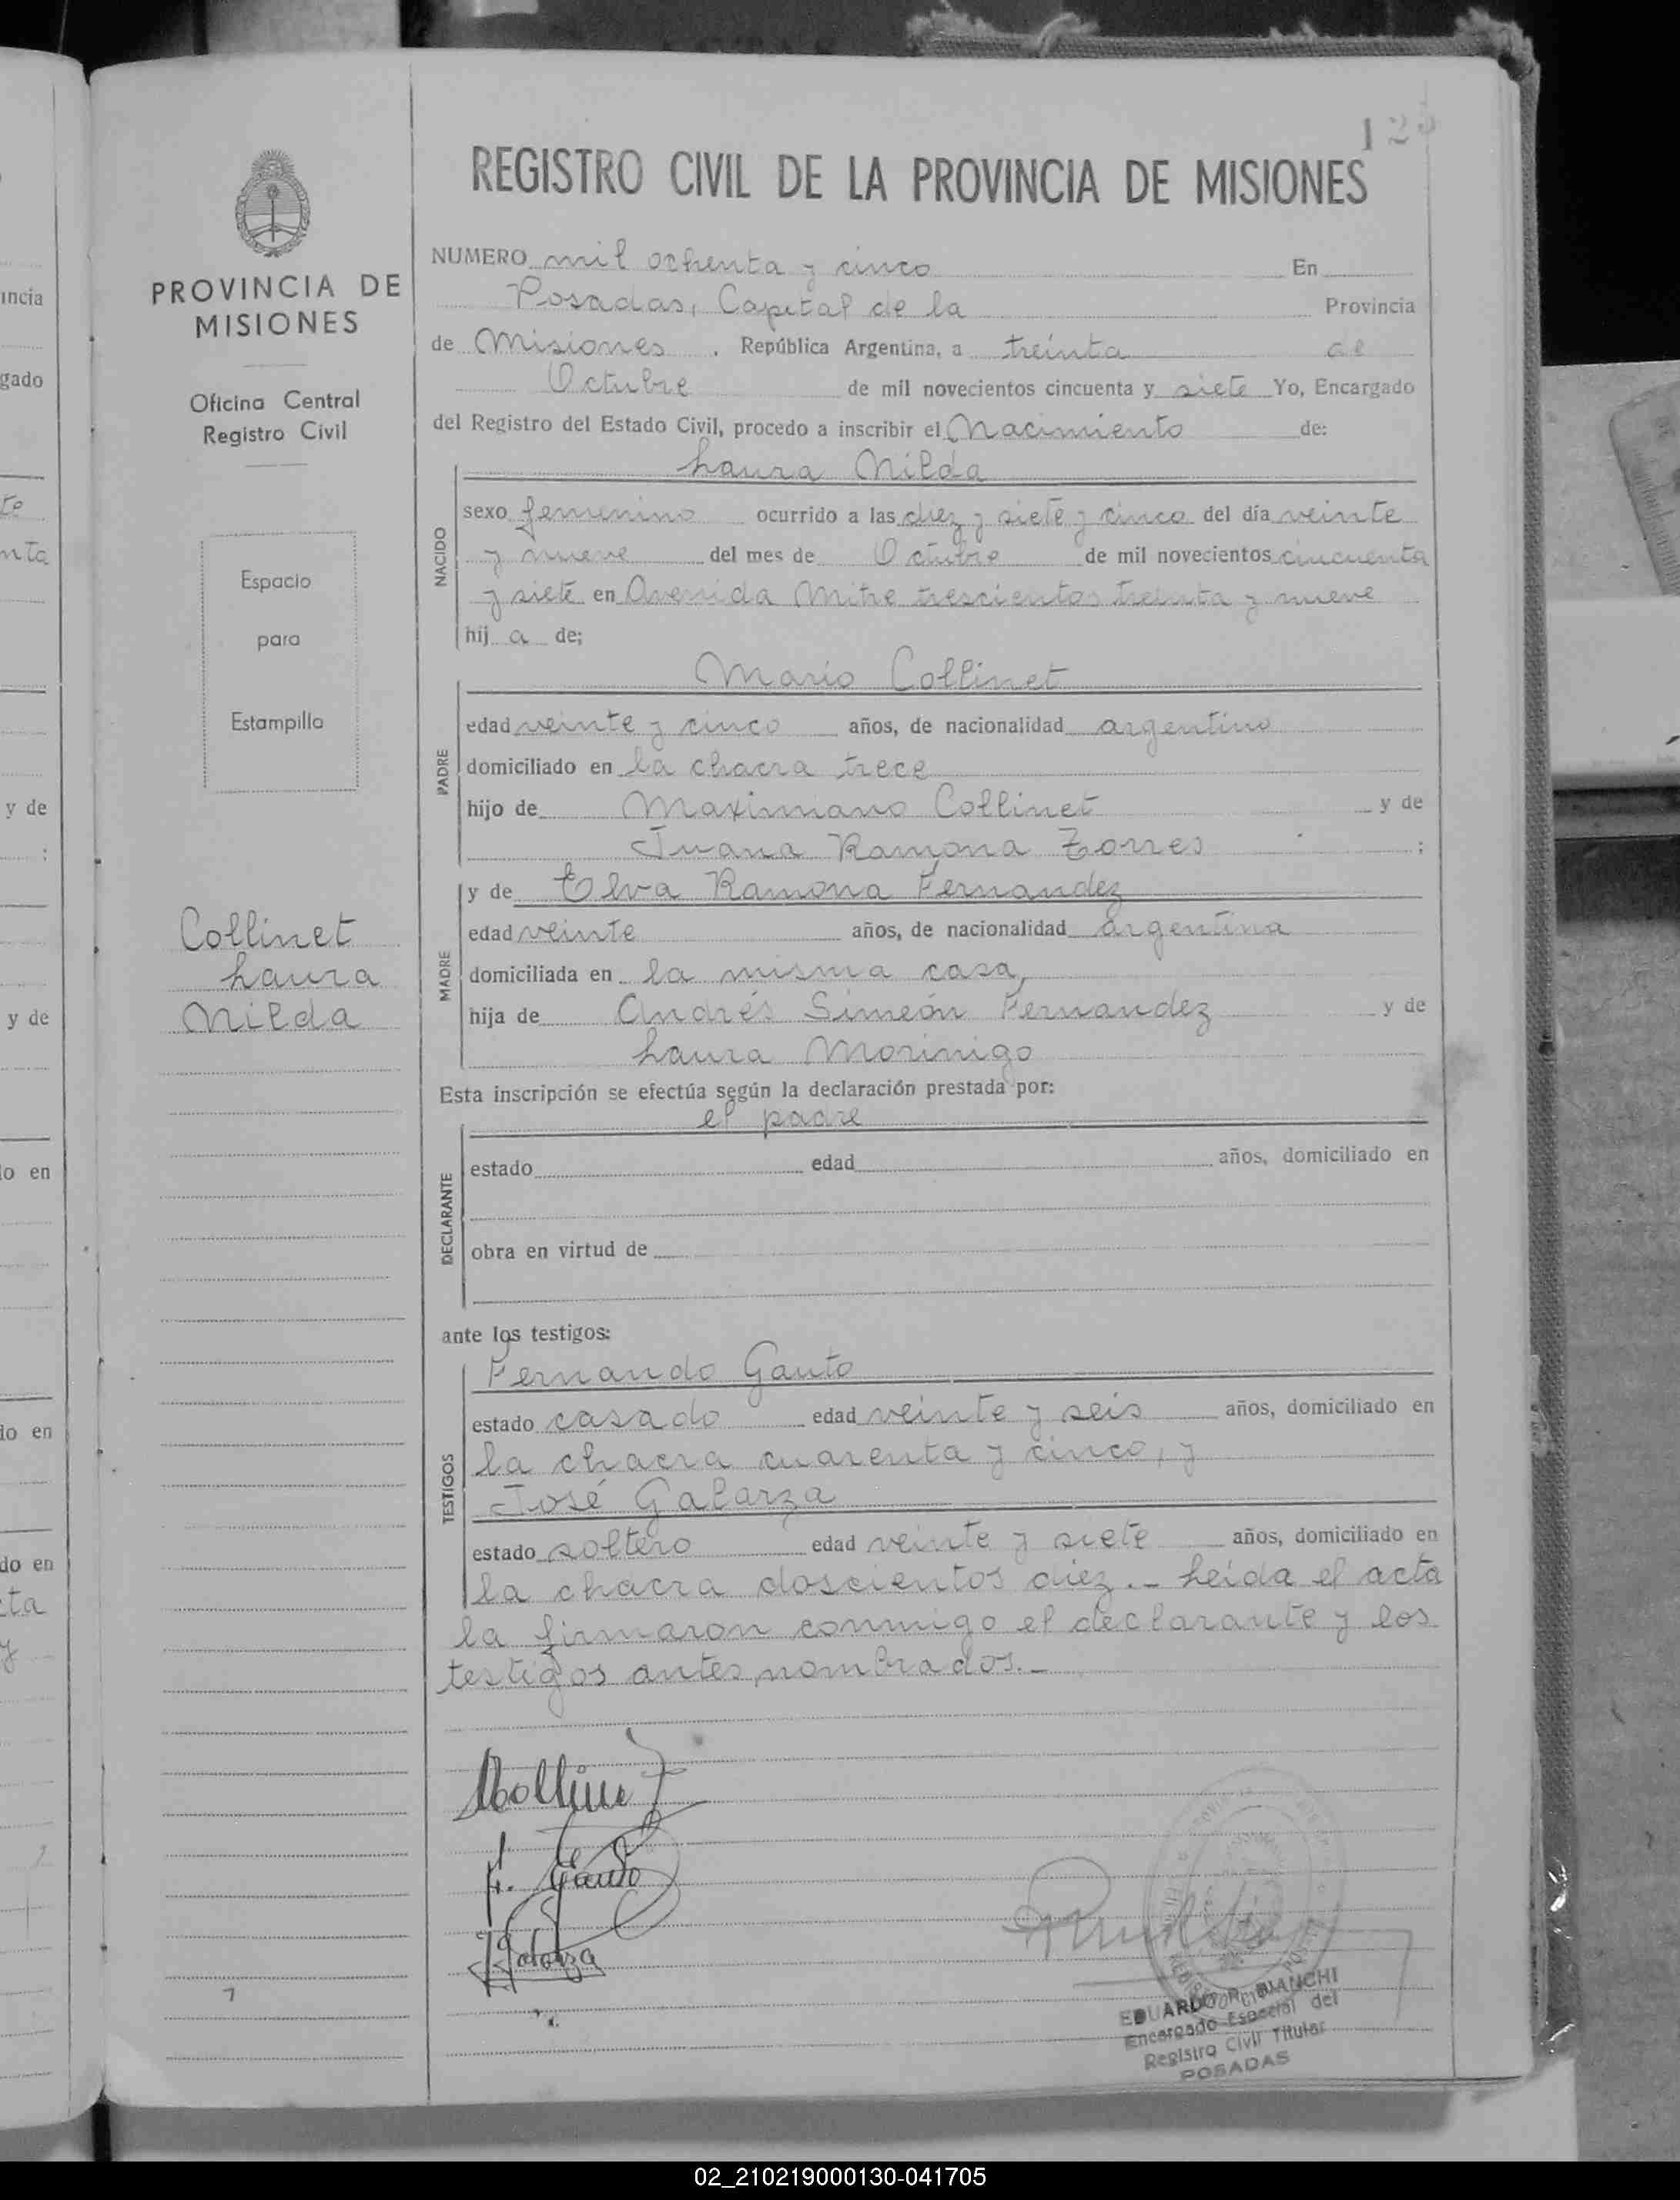 125
REGISTRO CIVIL DE LA PROVINCIA DE MISIONES
PROVINCIA DE
MISIONES
Oficina Central
Registro Civil
Espacio
para
Estampilla
Collinet
Laura
Nilda
NUMERO mil ochenta y cinco En
Posadas, Capital de la Provincia
de Misiones, República Argentina, a treinta de
Octubre de mil novecientos cincuenta y siete Yo, Encargado
del Registro del Estado Civil, procedo a inscribir el Nacimiento de:
Laura Nilda
NACIDO
sexo femenino ocurrido a las diez y siete y cinco del día veinte
y nueve del mes de Octubre de mil novecientos cincuenta
y siete en Avenida Mitre trescientos treinta y nueve
hij a de;
Mario Collinet
PADRE
edad veinte y cinco años, de nacionalidad argentino
domiciliado en la chacra trece
hijo de Maximiano Collinet y de
Juana Ramona Torres ;
y de Elva Ramona Fernandez
MADRE
edad veinte años, de nacionalidad argentina
domiciliada en la misma casa,
hija de Andrés Simeón Fernandez y de
Laura Morinigo
Esta inscripción se efectúa según la declaración prestada por:
el padre
DECLARANTE
estado edad años, domiciliado en
obra en virtud de
ante los testigos:
Fernando Gauto
TESTIGOS
estado casado edad veinte y seis años, domiciliado en
la chacra cuarenta y cinco, y
José Galarza
estado soltero edad veinte y siete años, domiciliado en
la chacra doscientos diez.- Leída el acta
la firmaron conmigo el declarante y los
testigos antes nombrados.-
F. Gauto
J Galarza
EDUARDO R. BIANCHI
Encargado Especial del
Registro Civil Titular
POSADAS
02_210219000130-041705